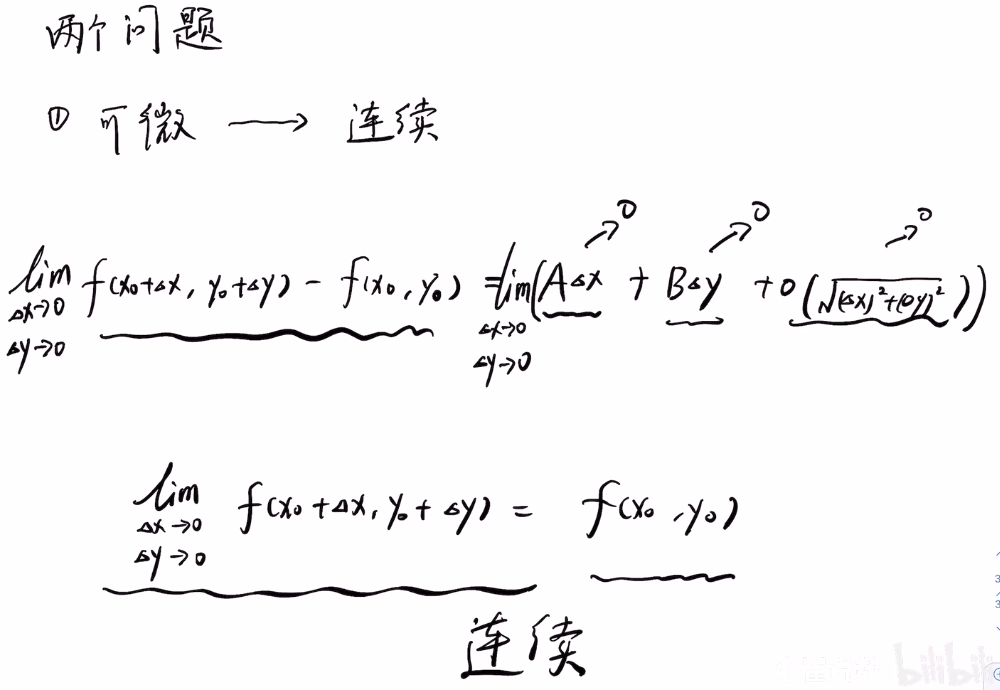 两个问题
① 可微 → 连续
lim Δx→0 Δy→0 f(x₀+Δx, y₀+Δy) - f(x₀, y₀) = lim Δx→0 Δy→0 (AΔx + BΔy + o(√(Δx)²+(Δy)²))
↗0 ↗0 ↗0
lim Δx→0 Δy→0 f(x₀+Δx, y₀+Δy) = f(x₀, y₀)
连续
bilibili